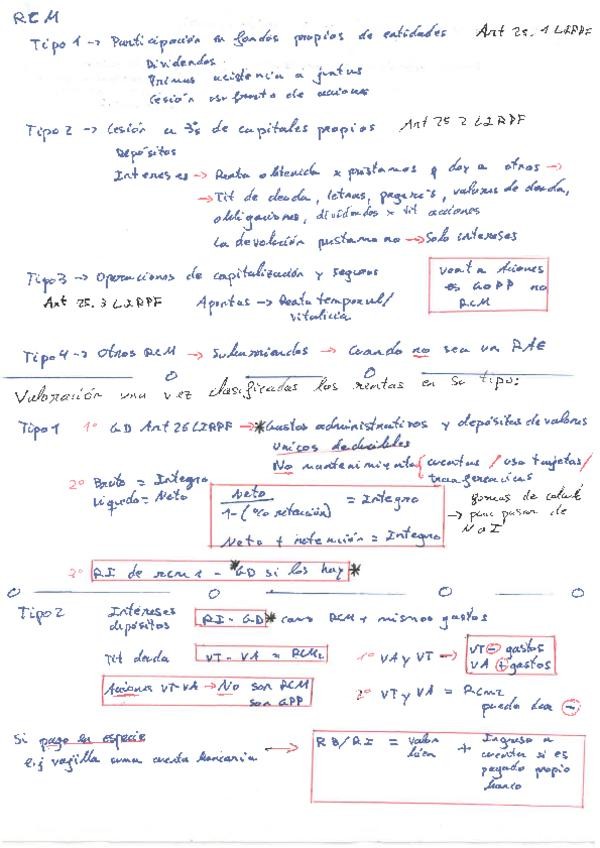 RCM
Tipo 1 → Participación en fondos propios de entidades Art 25.1 LIRPF
Dividendos
Primas asistencia a juntas
Cesión usufructo de acciones
Tipo 2 → Cesión a 3ºs de capitales propios Art 25 2 LIRPF
Depósitos
Intereses → Renta obtenida x préstamos q doy a otros →
→ Tit de deuda, letras, pagarés, valores de deuda,
obligaciones, dividendos x tit acciones
La devolución prestamo no → Solo intereses
Tipo 3 → Operaciones de capitalización y seguros
Art 25.3 LIRPF Aportas → Renta temporal/
vitalicia
venta Aciones
es GºPP no
RCM
Tipo 4 → Otros RCM → Subarriendos → Cuando no sea un RAE
Valoración una vez clasificadas las rentas en su tipo:
Tipo 1 1º GD Art 26 LIRPF → * Gastos administrativos y depósitos de valores
únicos deducibles
No mantenimiento cuentas / uso tarjetas /
transferencias
2º Bruto = Integro
Líquido = Neto
Neto
1-(% retención) = Integro
Neto + retención = Integro
→ formas de calcular
para pasar de
N a I
3º RI de rcm 1 - *GD si los hay *
Tipo 2 Intereses
depósitos RI - GD * como RCM 1 mismos gastos
Tit deuda VT - VA = RCM2 1º VA y VT → VT - gastos
VA + gastos
Aciones VT-VA → No son RCM
son GPP
2º VT y VA = Rcm2
puede dar -
Si pago en especie
e.j vagilla cuenta bancaria → RB/RI = valor bien + Ingreso a
cuenta si es
pagado propio
banco